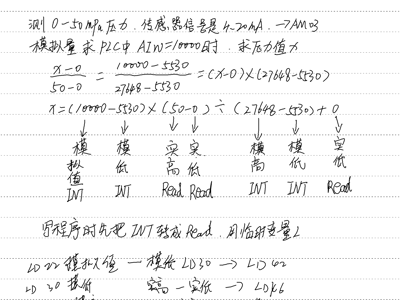 测 0~50mpa 压力，传感器信号是 4~20mA，→AM03
模拟量 求 PLC中 AIW=10000时，求压力值为
x-0/50-0 = 10000-5530/27648-5530 = (x-0)×(27648-5530)
x=(10000-5530)×(50-0)÷(27648-5530)+0
↓ ↓ ↓ ↓ ↓ ↓ ↓
模拟值 模低 实高 实低 模高 模低 实低
INT INT Read Read INT INT Read
写程序时先把 INT 转成 Read，用临时变量 L
LD22 模拟值 — 模低 LD30 → LD42
LD 30 模低 实高 — 实低 → LD